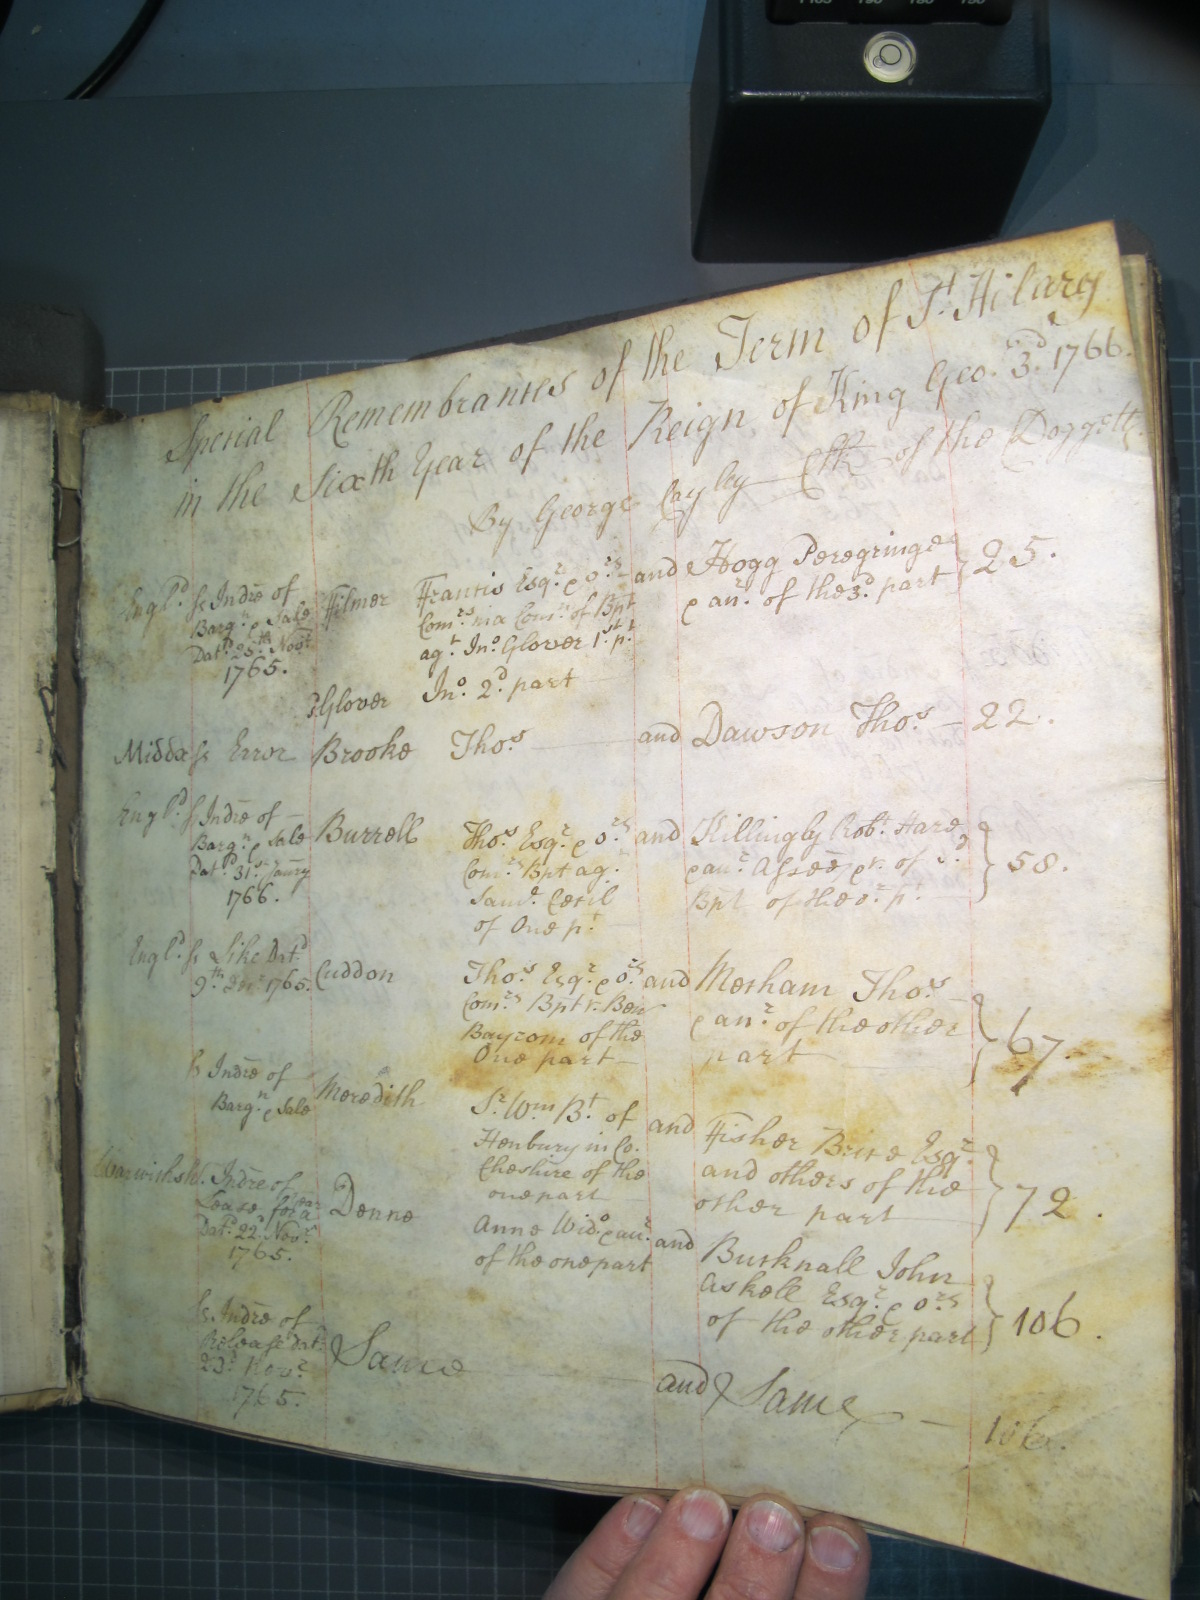 Special Remembrances of the Term of St. Hilary
in the Sixth Year of the Reign of King Geo. 3d. 1766.
By George Cayley Clk of the Doggetts.
Engld. ss Indre of Filmer Francis Esqr. & ors. and Hogg Peregrine 25.
Bargn. & Sale Comrs. Com. of Bpt & anr. of the 3d. part
Datd. 25th Novr. agt. Jno. Glover 1st. pt.
1765.
& Glover Jno. 2d. part
Middx ss Error Brooke Thos. and Dawson Thos. 22.
Engld. ss Indre of Burrell Thos. Esqr. & ors. and Killingly Robt. Hare 58.
Bargn. & Sale Comrs. Bpt agt. & anr. of sd.
Datd. 31st. Janry Saml. Cecil Bpt of the or. pt.
1766. of One pt.
Engld. ss Like Datd. Cuddon Thos. Esqr. & ors. and Morham Thos. 67.
9th Decr. 1765. Comrs. Bpt & anr. of the other
Bayrom of the part
One part
ss Indre of Meredith Sr. Wm. Bt. of and Fisher Brice Esqr. 72.
Bargn. & Sale Henbury in Co. and others of the
Cheshire of the other part
one part
Warwicksh. Indre of Denne Anne Wido. & anr. and Bucknall John 106.
Lease for a year of the one part Askell Esqr. & ors.
Datd. 22d. Novr. of the other part
1765.
ss. Indre of Same and Same 106.
Release Datd.
23d. Novr.
1765.